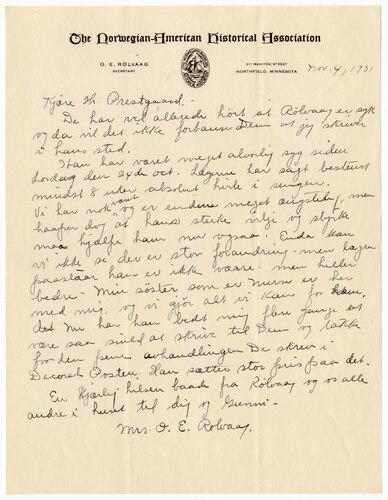 The Norwegian-American Historical Association
O. E. RÖLVAAG
SECRETARY
311 MANITOU STREET
NORTHFIELD, MINNESOTA
Nov. 4, 1931
Kjære Hr. Prestgaard—
De har vel allerede hört at Rölvaag er syk
og da vil det ikke forbause Dem at jeg skriver
i hans sted.
Han har været meget alvorlig syg siden
Lördag den 24de oct. Lægene har sagt bestemt
mindst 8 uker absolut hvile i sengen.
Vi har nok vært og er endnu meget ængstelig, men
haaper dog at hans sterke vilje og styrke
maa hjælpe ham nu ogsaa. Enda kan
vi ikke si der er stor forandring - men lægen
paastaar han er ikke værre - men heller
bedre - Min söster som er Nurse er her
med mig, og vi gjör alt vi kan for ham.
Nu har han bedt mig flere gange at
være saa snild at skrive til Dem og takke
for den pene avhandlingen De skrev i
Decorah Posten. Han sætter stor pris paa det.
En kjærlig hilsen baade fra Rölvaag og os alle
andre i huset til dig og Gunni -
Mrs. O. E. Rölvaag.